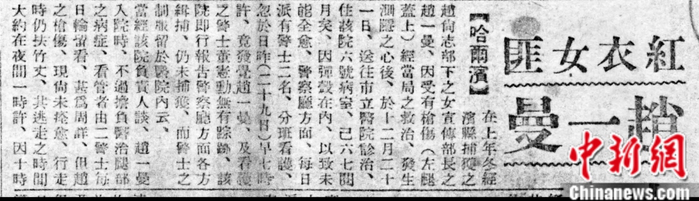 紅衣女匪
趙一曼
【哈爾濱】
在上年冬經
濱縣捕獲之
趙尙志部下之女宣傳部長之
趙一曼、因受有槍傷（左腿
蓋上）經當局之救治、發生
惻隱之心後、於十二月二十
一日、送往市立醫院診治、
住該院六號病室、已六七閱
月矣、因彈殼在內、以致未
能全愈、警察廳方面、每日
派有警士二名、分班看護、
忽於日昨（二十九日）早七時
許、竟發覺趙一曼、及看護
之警士董憲勳無有踪跡、該
院卽行報告警察廳方面各方
緝捕、仍未捕獲、而警士之
制服留於醫院內云、
當經該院負責人談、趙一曼
入院時、不過擔負醫治腿部
之病症、看管者由二警士每
日輪留看、甚爲周詳、但趙
之槍傷、現尙未痊愈、行走
時仍扶竹丈、其逃走之時間
大約在夜間一時許、因十時
中新網
Chinanews.com